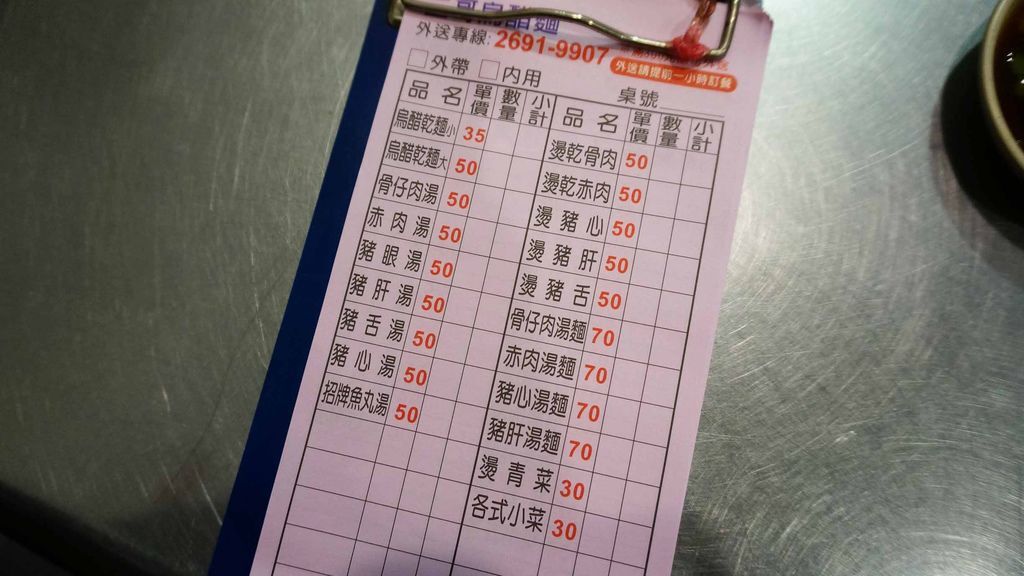 烏醋麵
外送專線: 2691-9907
外送請提前一小時訂餐
□外帶 □內用 桌號
品名 單價 數量 小計 品名 單價 數量 小計
烏醋乾麵小 35 燙乾骨肉 50
烏醋乾麵大 50 燙乾赤肉 50
骨仔肉湯 50 燙豬心 50
赤肉湯 50 燙豬肝 50
豬眼湯 50 燙豬舌 50
豬肝湯 50 骨仔肉湯麵 70
豬舌湯 50 赤肉湯麵 70
豬心湯 50 豬心湯麵 70
招牌魚丸湯 50 豬肝湯麵 70
燙青菜 30
各式小菜 30